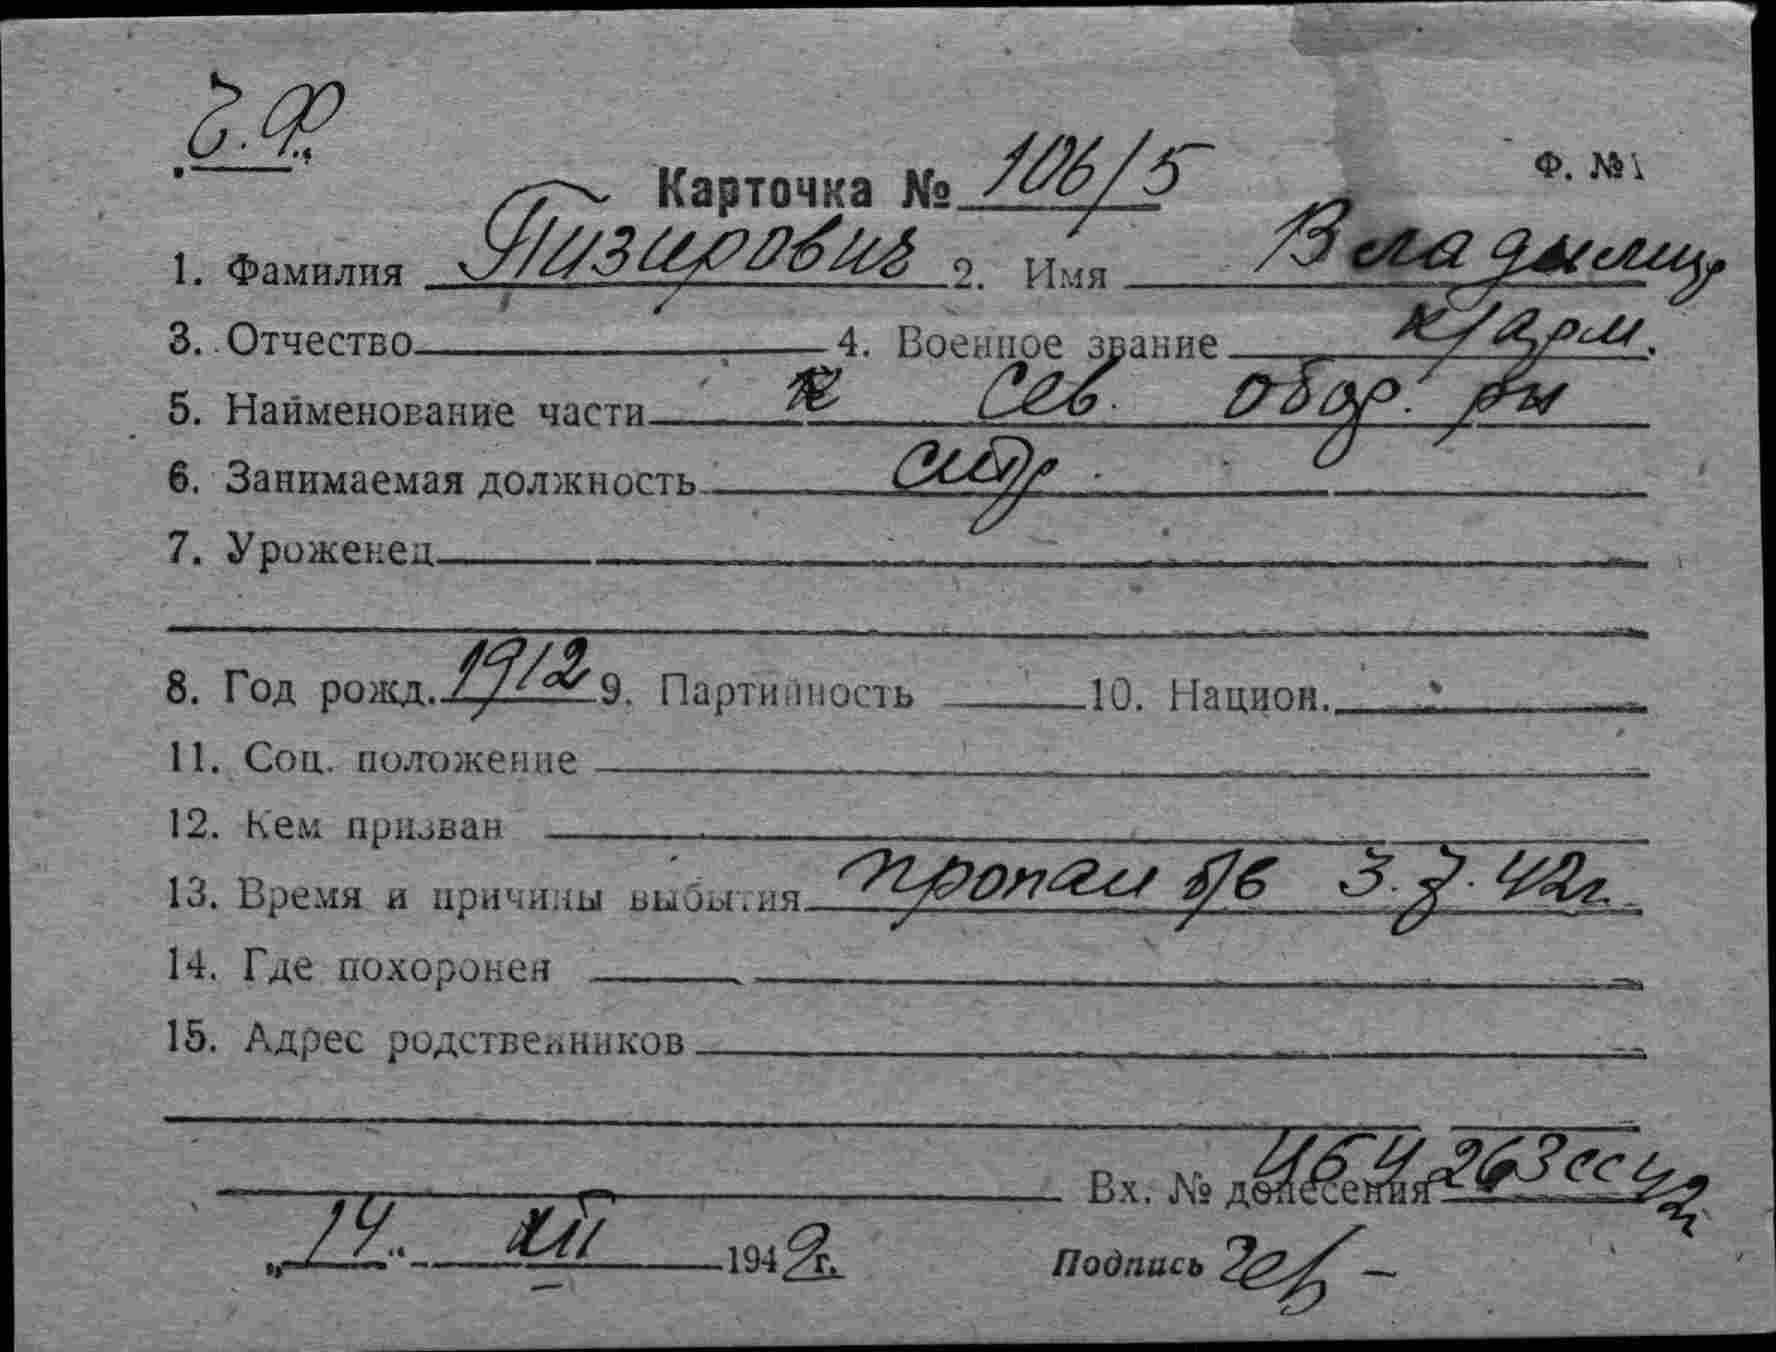 Ч.Ф.
Карточка № 106/5
Ф. №1
1. Фамилия Пизирович 2. Имя Владимир
3. Отчество 4. Военное звание к/арм.
5. Наименование части Сев. обор. р-н
6. Занимаемая должность стр.
7. Уроженец
8. Год рожд. 1912 9. Партийность 10. Национ.
11. Соц. положение
12. Кем призван
13. Время и причины выбытия пропал б/в 3.7.42г.
14. Где похоронен
15. Адрес родственников
Вх. № донесения 263сс 42
„14" XII 1942г. Подпись